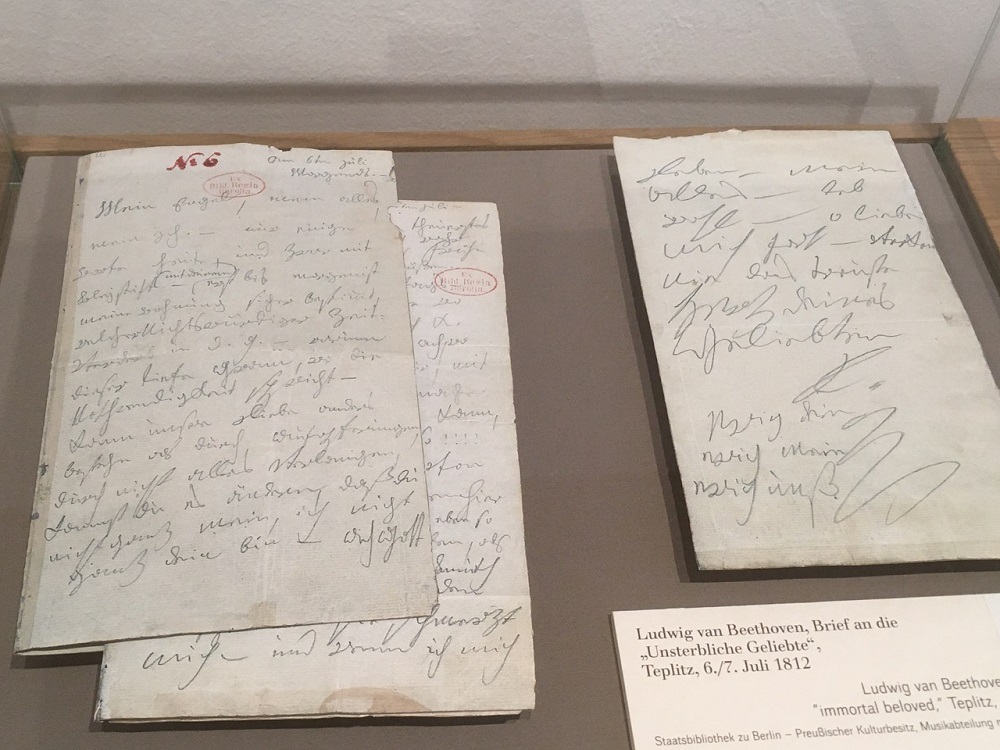 No 6
am 6ten Juli
Morgends. –
Ex
Bibl. Regia
Berolin.
Mein Engel, mein alles,
mein Ich. – nur einige
Worte heute, und zwar mit
Bleystift – (mit deinem) bis morgen ist
meine wohnung sicher bestimmt,
welcher Nichtswürdiger Zeit-
verderb in d. g. – warum
dieser tiefe Gram, wo die
Nothwendigkeit spricht –
Kann unsre Liebe anders
bestehn als durch Aufopferungen,
durch nicht alles verlangen,
kannst du es ändern, daß du
nicht ganz mein, ich nicht
ganz dein bin – Ach Gott
Ex
Bibl. Regia
Berolin.
mich – und wenn ich mich
leben – Mein
alles – leb
wohl – o liebe
mich fort –
nie das treuste
Herz deines
Geliebten
L.
ewig dein
ewig mein
ewig unß
Ludwig van Beethoven, Brief an die
„Unsterbliche Geliebte“,
Teplitz, 6./7. Juli 1812
Ludwig van Beethove
"immortal beloved," Teplitz,
Staatsbibliothek zu Berlin – Preußischer Kulturbesitz, Musikabteilung